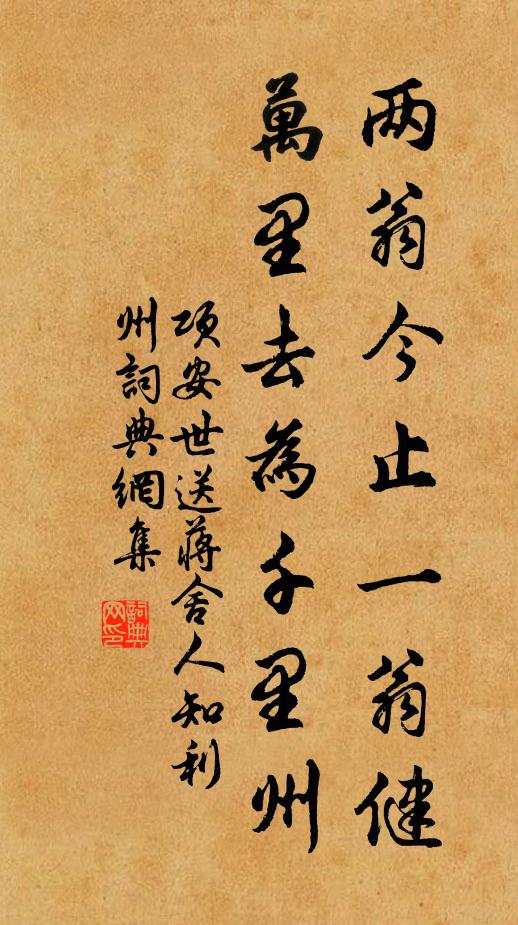 两翁今止一翁健
萬里去為千里州
项安世送蔣舍人知利
州詞典網集
詞典网印